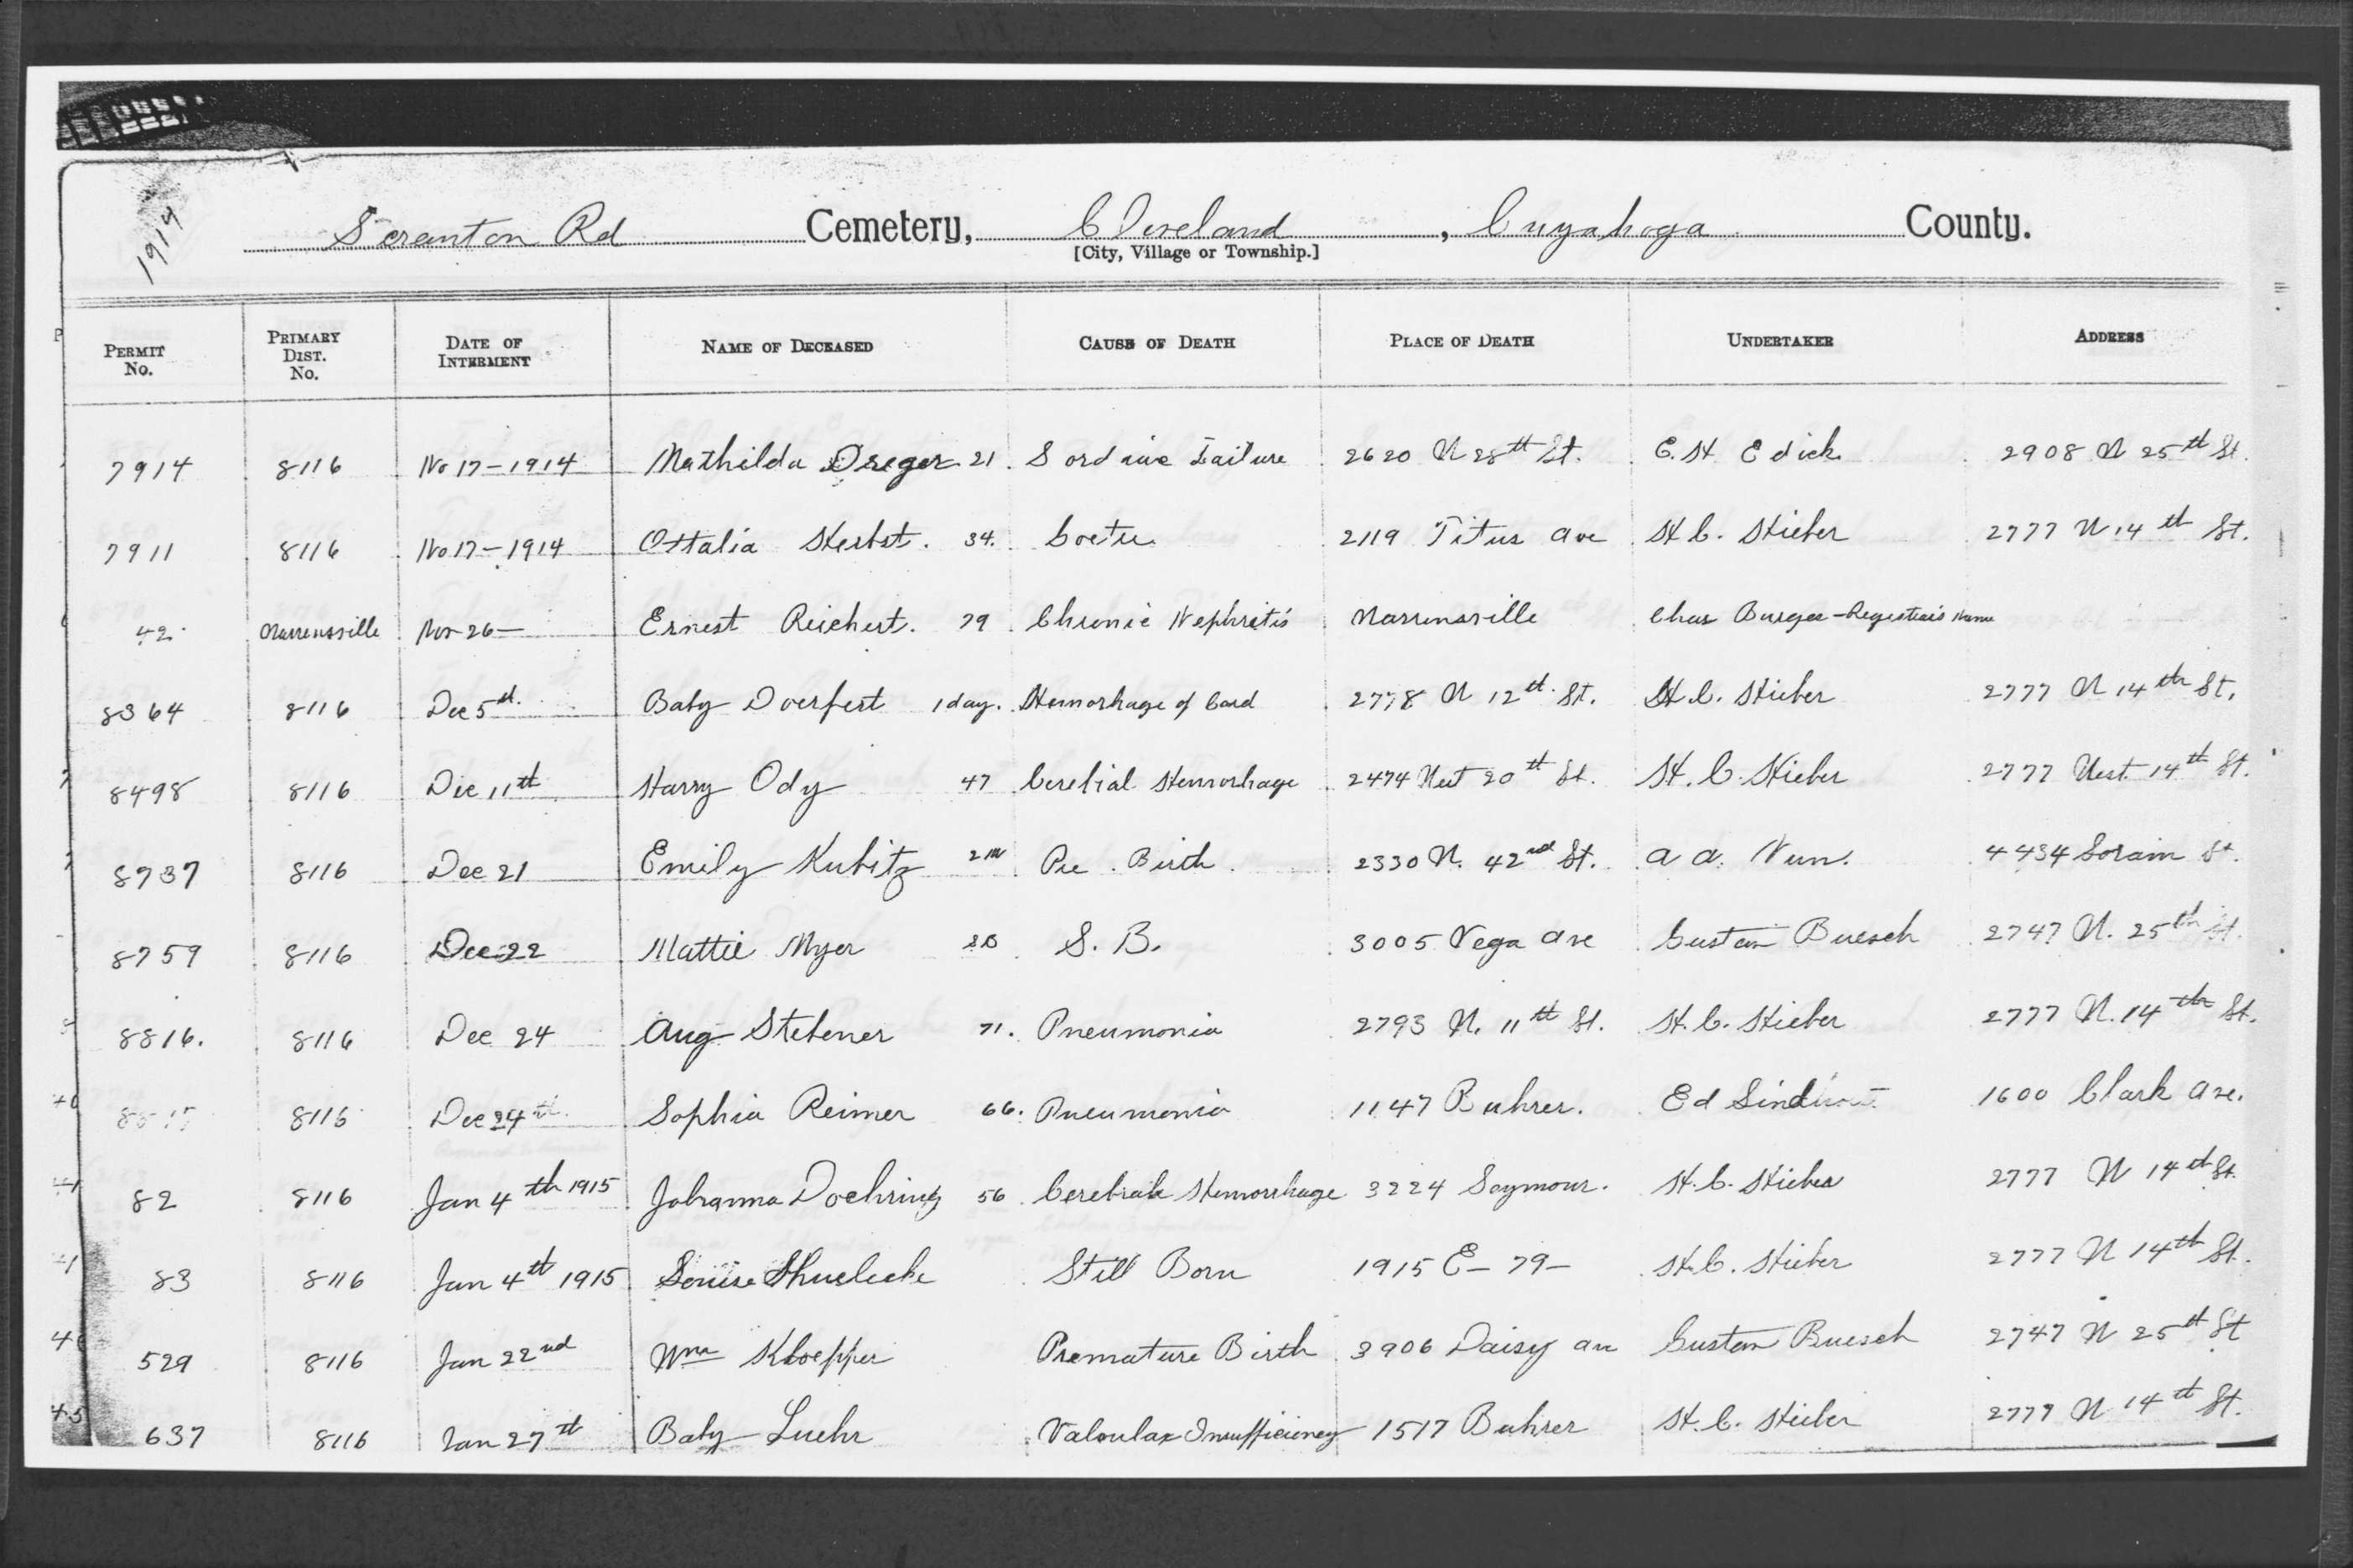 1914
Scranton Rd Cemetery, Cleveland, Cuyahoga County.
[City, Village or Township.]
PERMIT No. PRIMARY DIST. No. DATE OF INTERMENT NAME OF DECEASED CAUSE OF DEATH PLACE OF DEATH UNDERTAKER ADDRESS
7914 8116 No 17-1914 Mathilda Dreger 21. Failure 2620 W 28th St. E. H Edick 2908 W 25th St.
7911 8116 No 17-1914 Ottalia Herbst. 34. 2119 Titus Ave H C. Stieber 2777 W 14th St.
42 Warrensville Nov 26- Ernest Reichert. 79 Chronic Nephritis Warrensville Chas Burges - Name
8364 8116 Dec 5th. Baby Doerfert 1 day. Hemorhage of Cord 2778 W 12th St. H. C. Stieber 2777 W 14th St.
8498 8116 Dec 11th Harry Ody 47 Hemorhage 2474 West 20th St. H. C. Stieber 2777 West 14th St.
8737 8116 Dec 21 Emily Kubitz 2m Pre. Birth. 2330 W. 42nd St. A A. Nunn. 4434 Lorain St.
8759 8116 Dec 22 Mattie Myer S. B. 3005 Vega Ave Gustav Buesch 2747 W. 25th St.
8816. 8116 Dec 24 Aug Stebener 71. Pneumonia 2793 W. 11th St. H. C. Stieber 2777 W. 14th St.
8116 Dec 24th Sophia Reimer 66. Pneumonia 1147 Buhrer. Ed 1600 Clark Ave.
82 8116 Jan 4th 1915 Johanna Doehring 56 Hemorrhage 3224 Seymour. H. C. Stieber 2777 W 14th St.
83 8116 Jan 4th 1915 Louise Still Born 1915 E- 79- H. C. Stieber 2777 W 14th St.
529 8116 Jan 22nd Wm Kloepper Premature Birth 3906 Daisy Gustav Buesch 2747 W 25th St
637 8116 Jan 27th Baby Luehr Valvular Insufficiency 1517 Buhrer H. C. Stieber 2777 W 14th St.